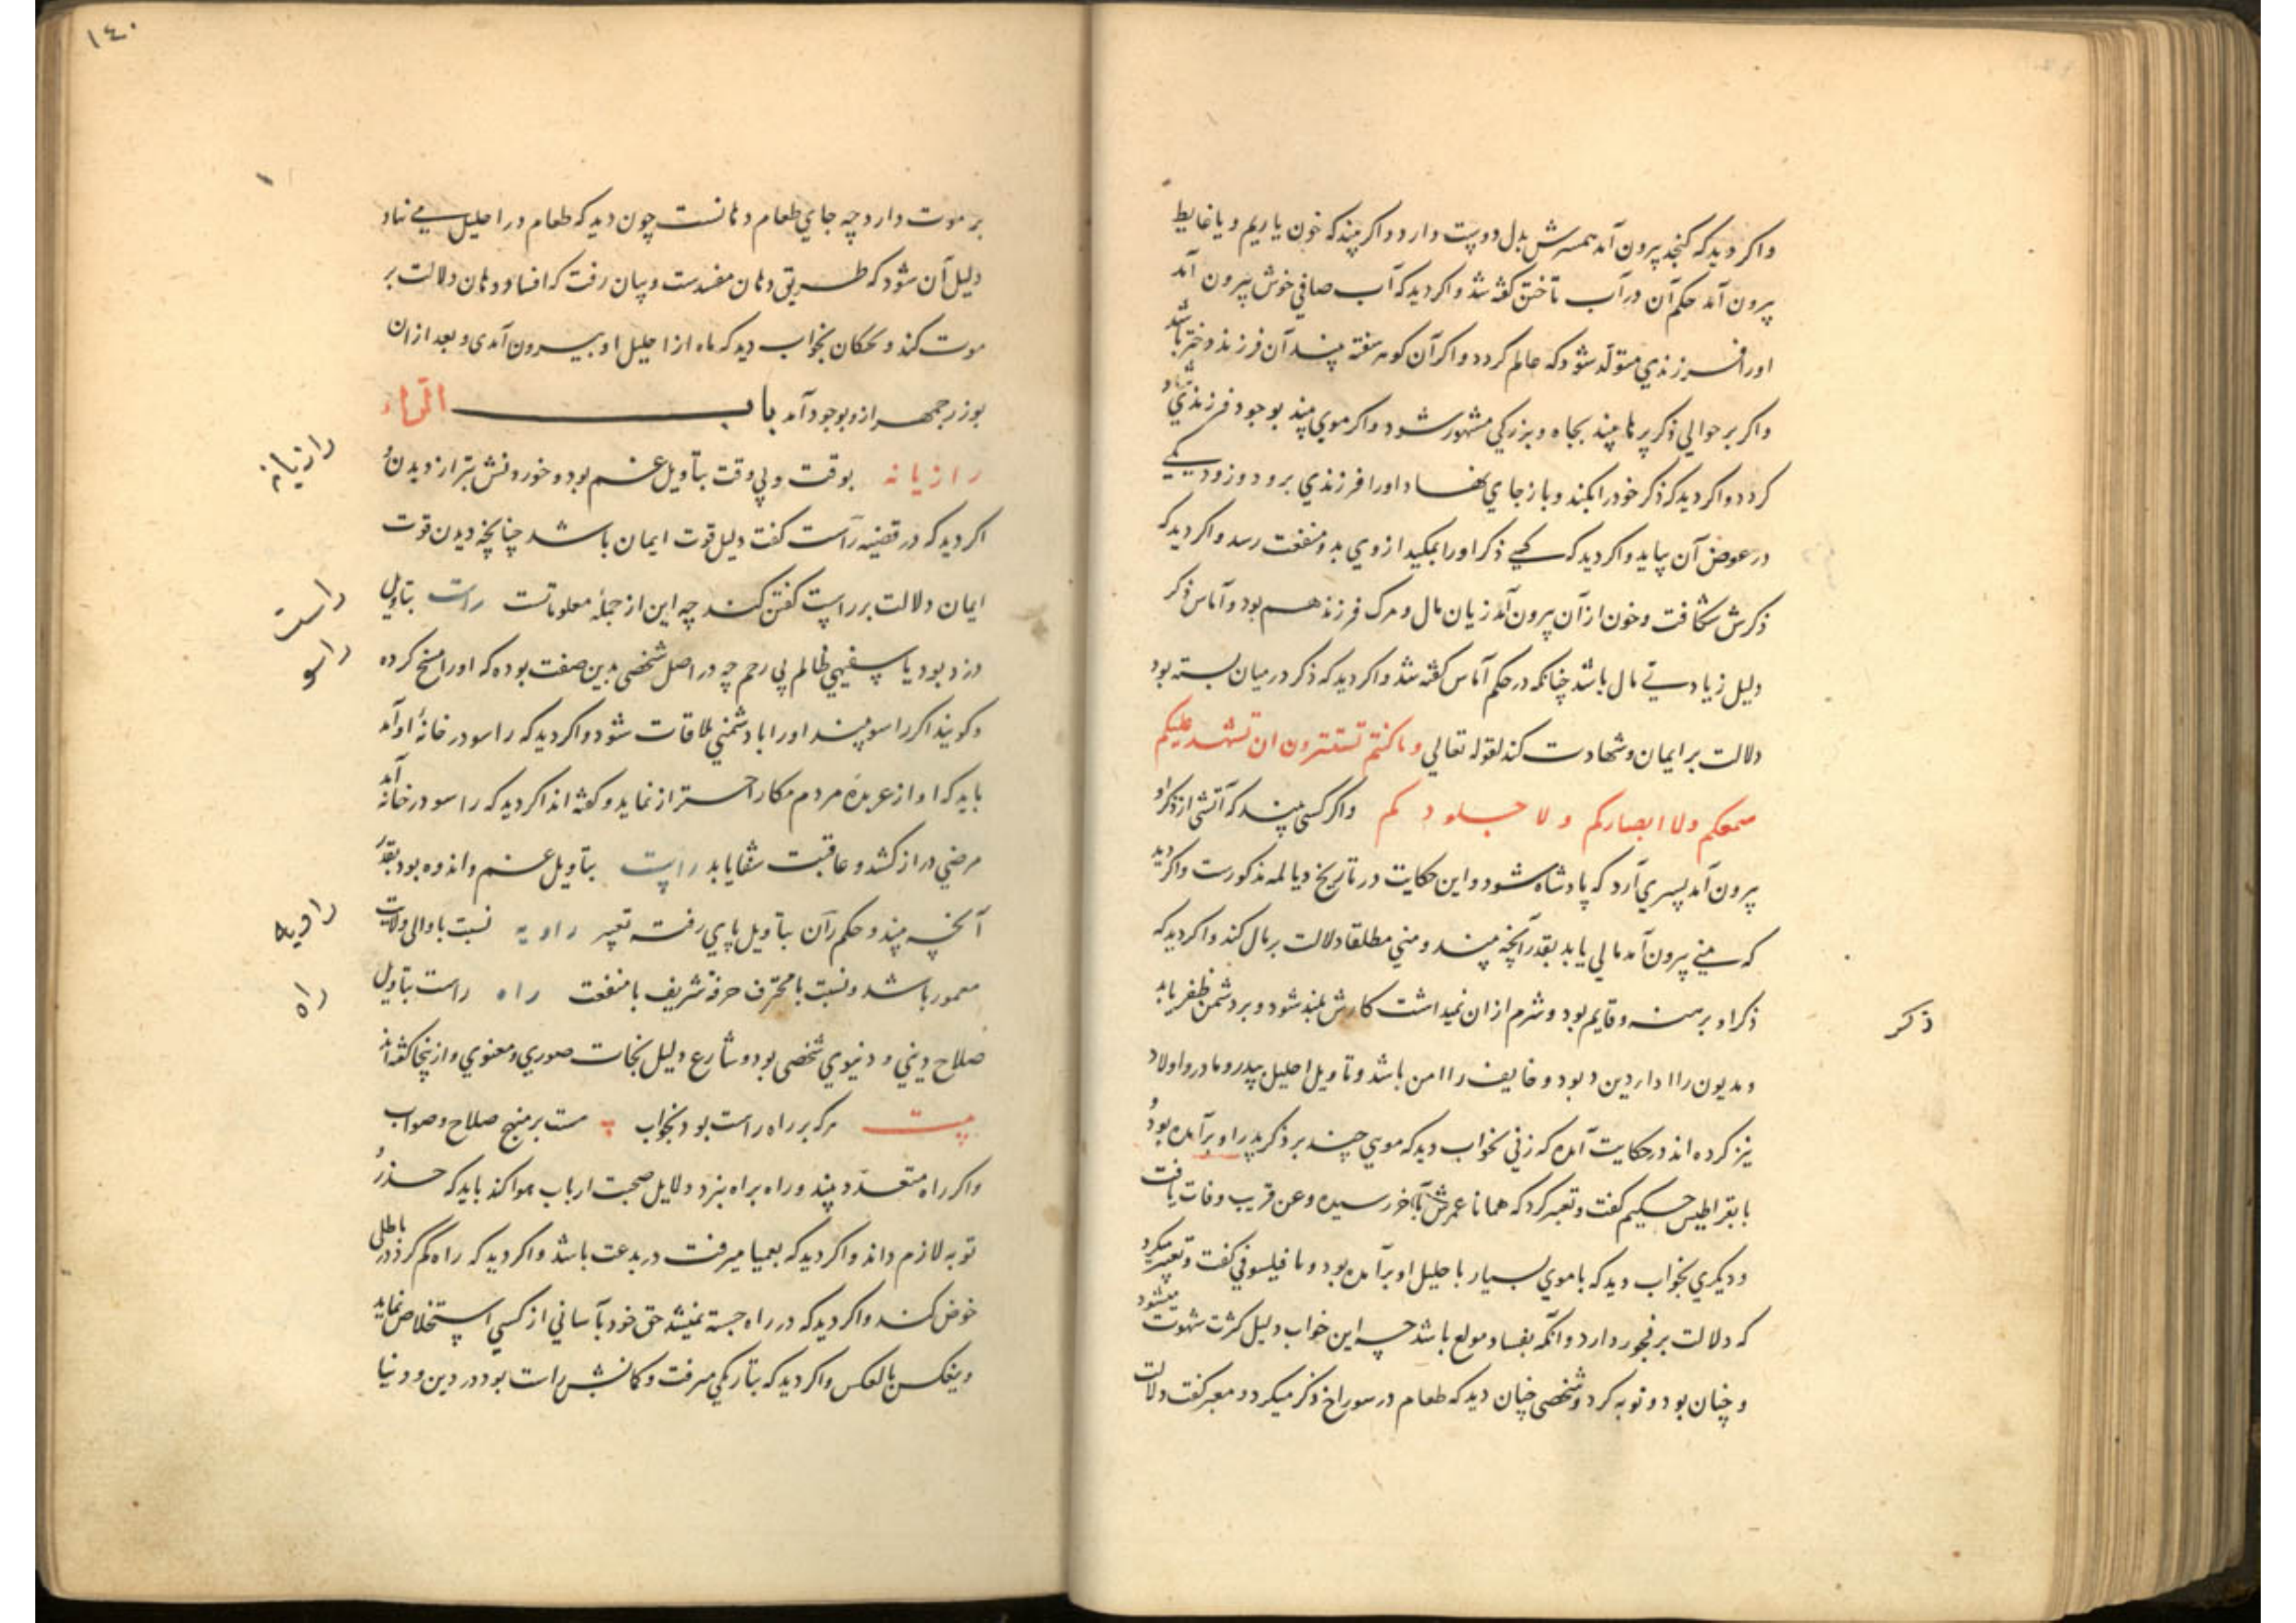 واکر دید که کنجد پرون آمد همسرش بدل دوست دارد واکر بیند که خون یا ریم ویا غایط
پرون آمد حکم آن در آب تاختن کفته شد واکر دید که آب صافی خوش پرون آمد
اورا فرزندی متولد شود که عالم کردد واکر آن کوهر سفته بیند آن فرزند دختر باشد
واکر بر حوالی ذکر پرها بیند بجاه وبزرکی مشهور شود واکر موی بیند بوجود فرزندی شاد
کردد واکر دید که ذکر خود را بکند وباز جای نهاد اورا فرزندی برود وزود یکی
در عوض آن بیاید واکر دید که کسی ذکر اورا بمکید از وی بدو منفعت رسد واکر دید که
ذکرش شکافت وخون از آن پرون آمد زیان مال ومرک فرزند هم بود وآماس ذکر
دلیل زیادتی مال باشد چنانکه در حکم آماس کفته شد واکر دید که ذکر در میان بسته بود
دلالت بر ایمان وشهادت کند لقوله تعالی وما کنتم تستترون ان تشهد علیکم
سمعکم ولا ابصارکم ولا جلودکم واکر کسی بیند که آتشی از ذکر او
پرون آمد پسری آرد که پادشاه شود واین حکایت در تاریخ دیالمه مذکورست واکر دید
که منی پرون آمد مالی یابد بقدر آنچه بیند ومنی مطلقا دلالت بر مال کند واکر دید که
ذکر او برهنه وقایم بود وشرم از ان نمیداشت کارش بلند شود وبر دشمن ظفر یابد
ذکر
ومدیون را ادا دین بود وخایف را امن باشد وتاویل احلیل بپدر ومادر واولاد
نیز کرده اند در حکایت آمده که زنی بخواب دید که موی چند بر ذکر پدر او بر آمده بود
با بقراطیس حکیم کفت وتعبیر کرد که همانا عمرش بآخر رسیده وعن قریب وفات یافت
ودیکری بخواب دید که با موی بسیار با حلیل او بر آمده بود وبا فیلسوفی کفت وتعبیر میکرد
که دلالت بر فجور دارد وآنکه بفساد مولع باشد چه این خواب دلیل کثرت شهوت میشود
وچنان بود وتوبه کرد وشخصی چنان دید که طعام در سوراخ ذکر میکرد ومعبر کفت دلالت
١٤٠
بر موت دارد چه جای طعام دهانست چون دید که طعام در احلیل می نهاد
دلیل آن شود که طریق دهان مفسدست وبیان رفت که افساد دهان دلالت بر
موت کند وبختکان بخواب دید که ماه از احلیل او بیرون آمدی وبعد از ان
بوزرجمهر ازو بوجود آمد باب الراء
رازیانه بوقت وبی وقت بتاویل غم بود وخوردنش بتر از دیدن و
رازیانه
اکر دید که در قضیه راست کفت دلیل قوت ایمان باشد چنانچه دیدن قوت
ایمان دلالت بر راست کفتن کند چه این از جمله معلوماتست راست بتاویل
راست
دزد بود یا سفیهی ظالم بی رحم چه در اصل شخصی بدین صفت بوده که اورا مسخ کرده
راسو
وکویند اکر راسو بیند اورا با دشمنی ملاقات شود واکر دید که راسو در خانه او آمد
باید که او از عربده مردم مکار احتراز نماید وکفته اند اکر دید که راسو در خانه آمد
مرضی دراز کشد وعاقبت شفا یابد راست بتاویل غم واندوه بود بقدر
آنچه بیند وحکم ران بتاویل پای رفته تعبیر راویه نسبت با والی ولایت
راویه
معمور باشد ونسبت با محترف حرفه شریف با منفعت راه راست بتاویل
راه
صلاح دینی ودنیوی شخصی بود وشارع دلیل نجات صوری ومعنوی وازینجا کفته اند
بیت هرکه بر راه راست بود بخواب هست بر منهج صلاح وصواب
واکر راه متعدد بیند وراه براه نبرد دلایل صحبت ارباب هوا کند باید که حذر و
توبه لازم داند واکر دید که بعمیا میرفت در بدعت باشد واکر دید که راه کم کرد در باطلی
خوض کند واکر دید که در راه جسته نمیشد حق خود بآسانی از کسی استخلاص نماید
وبعکس بالعکس واکر دید که بتاریکی میرفت وکمانش راست بود در دین ودنیا